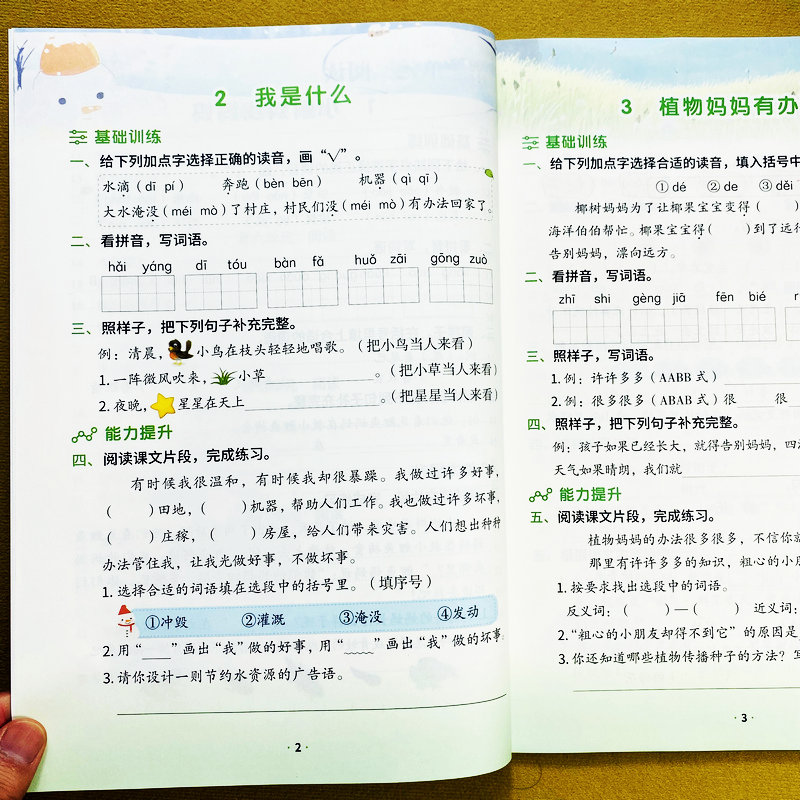 2 我是什么
基础训练
一、给下列加点字选择正确的读音，画“√”。
水滴（dī pí） 奔跑（bèn bēn） 机器（qì qī）
大水淹没（méi mò）了村庄，村民们没（méi mò）有办法回家了。
二、看拼音，写词语。
hǎi yáng dī tóu bàn fǎ huǒ zāi gōng zuò
三、照样子，把下列句子补充完整。
例：清晨，小鸟在枝头轻轻地唱歌。（把小鸟当人来看）
1.一阵微风吹来，小草____________。（把小草当人来看）
2.夜晚，星星在天上____________。（把星星当人来看）
能力提升
四、阅读课文片段，完成练习。
有时候我很温和，有时候我却很暴躁。我做过许多好事，
（ ）田地，（ ）机器，帮助人们工作。我也做过许多坏事，
（ ）庄稼，（ ）房屋，给人们带来灾害。人们想出种种
办法管住我，让我光做好事，不做坏事。
1.选择合适的词语填在选段中的括号里。（填序号）
①冲毁 ②灌溉 ③淹没 ④发动
2.用“____”画出“我”做的好事，用“﹏﹏”画出“我”做的坏事。
3.请你设计一则节约水资源的广告语。
·2·
3 植物妈妈有办
基础训练
一、给下列加点字选择合适的读音，填入括号中
①dé ②de ③děi
椰树妈妈为了让椰果宝宝变得（ ）
海洋伯伯帮忙。椰果宝宝得（ ）到了远行
告别妈妈，漂向远方。
二、看拼音，写词语。
zhī shi gèng jiā fēn bié
三、照样子，写词语。
1.例：许许多多（AABB 式）
2.例：很多很多（ABAB 式）很 很
四、照样子，把下列句子补充完整。
例：孩子如果已经长大，就得告别妈妈，四
天气如果晴朗，我们就
能力提升
五、阅读课文片段，完成练习。
植物妈妈的办法很多很多，不信你就
那里有许许多多的知识，粗心的小朋
1.按要求找出选段中的词语。
反义词：（ ）—（ ） 近义词：
2.“粗心的小朋友却得不到它”的原因是
3.你还知道哪些植物传播种子的方法？写
·3·